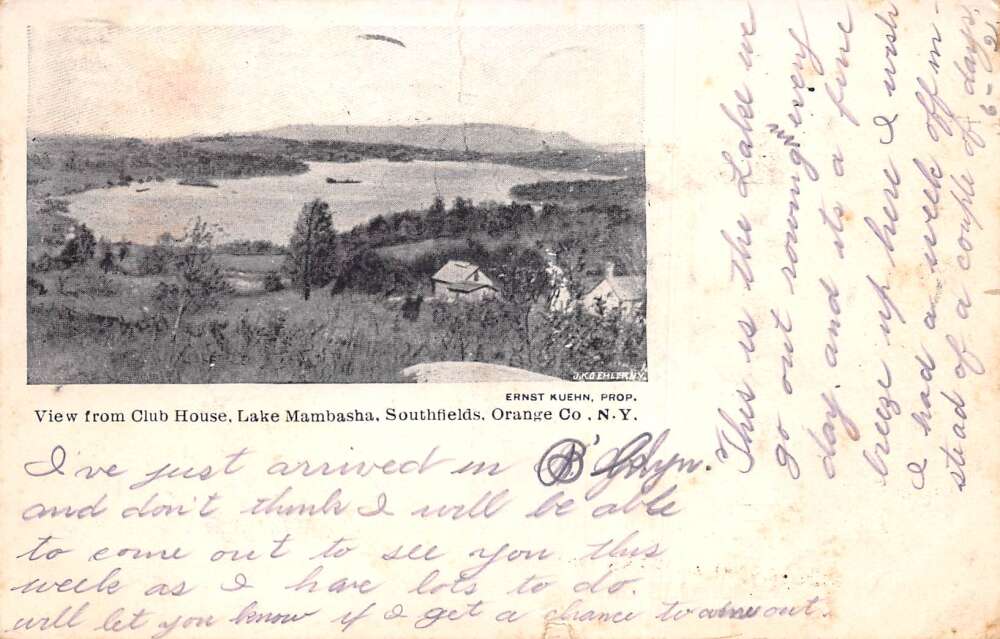 J. KOEHLER N.Y.
ERNST KUEHN, PROP.
View from Club House, Lake Mambasha, Southfields, Orange Co., N.Y.
I've just arrived in B'klyn.
and don't think I will be able
to come out to see you this
week as I have lots to do.
will let you know if I get a chance to come out.
This is the Lake we
go out rowing every
day, and its a fine
breeze up here I wish
I had a week off in-
stead of a couple of days.